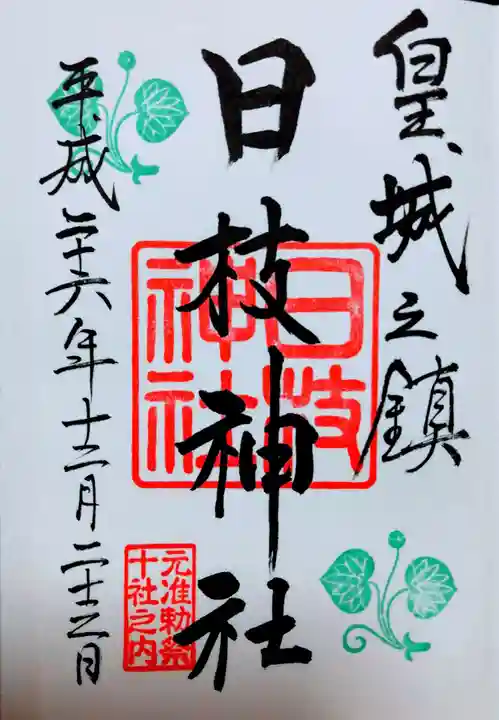 皇城之鎮
日枝神社
日枝
神社
平成二十六年十二月二十三日
元准勅祭
十社之内